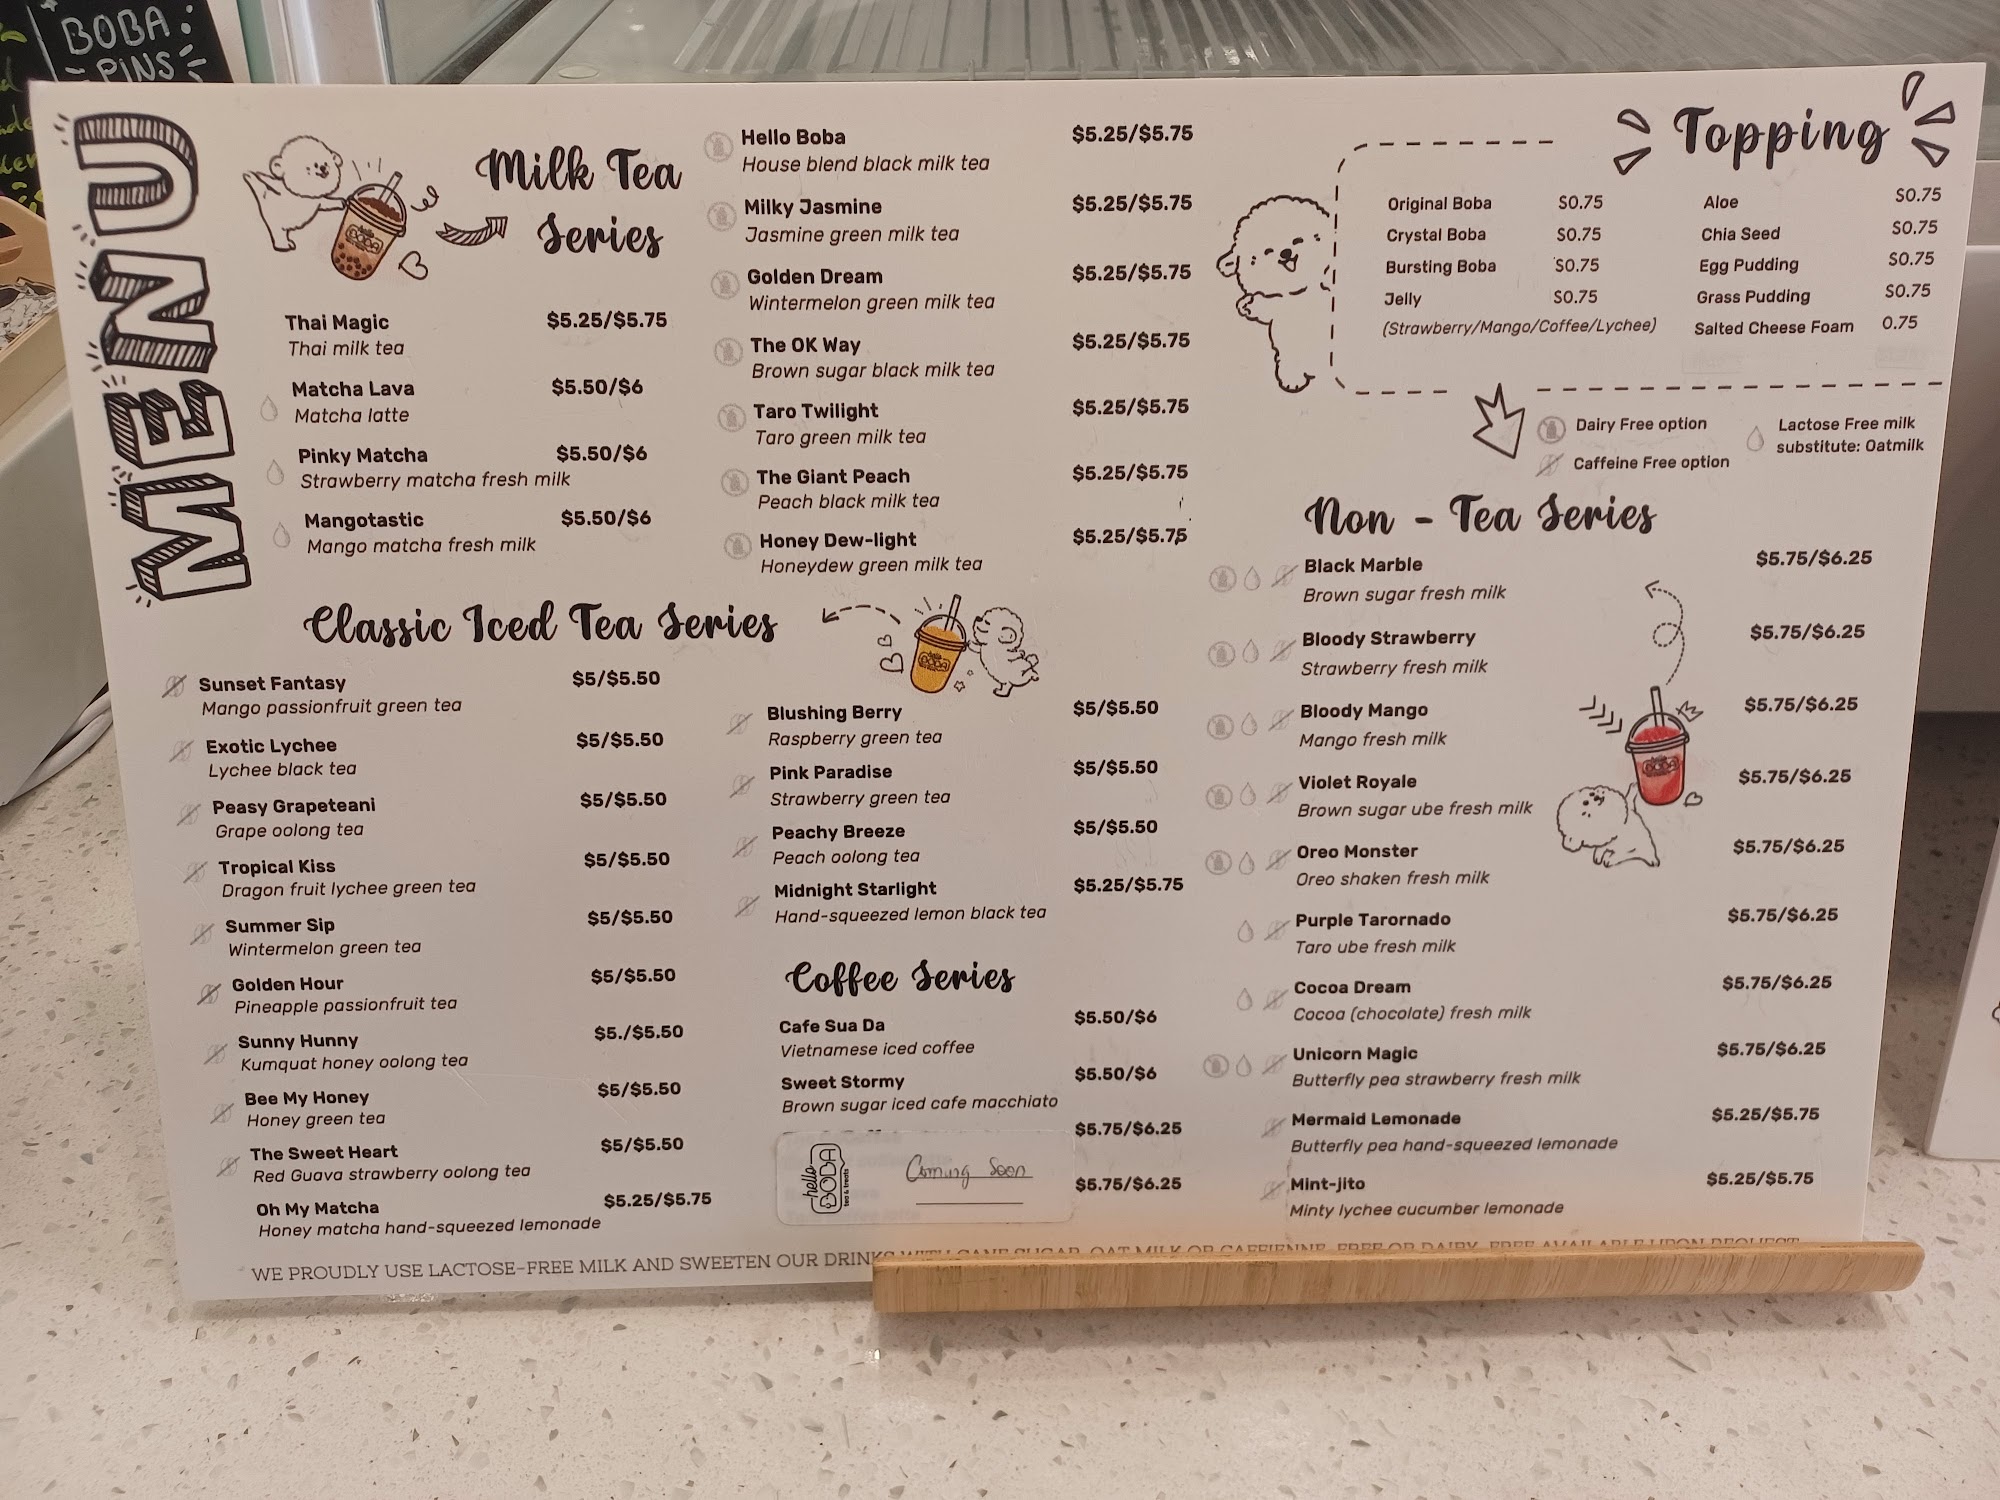 BOBA
PINS
MENU
Milk Tea
Series
Thai Magic $5.25/$5.75
Thai milk tea
Matcha Lava $5.50/$6
Matcha latte
Pinky Matcha $5.50/$6
Strawberry matcha fresh milk
Mangotastic $5.50/$6
Mango matcha fresh milk
Hello Boba $5.25/$5.75
House blend black milk tea
Milky Jasmine $5.25/$5.75
Jasmine green milk tea
Golden Dream $5.25/$5.75
Wintermelon green milk tea
The OK Way $5.25/$5.75
Brown sugar black milk tea
Taro Twilight $5.25/$5.75
Taro green milk tea
The Giant Peach $5.25/$5.75
Peach black milk tea
Honey Dew-light $5.25/$5.75
Honeydew green milk tea
Topping
Original Boba $0.75
Crystal Boba $0.75
Bursting Boba $0.75
Jelly $0.75
(Strawberry/Mango/Coffee/Lychee)
Aloe $0.75
Chia Seed $0.75
Egg Pudding $0.75
Grass Pudding $0.75
Salted Cheese Foam 0.75
Dairy Free option
Caffeine Free option
Lactose Free milk
substitute: Oatmilk
Classic Iced Tea Series
Sunset Fantasy $5/$5.50
Mango passionfruit green tea
Exotic Lychee $5/$5.50
Lychee black tea
Peasy Grapeteani $5/$5.50
Grape oolong tea
Tropical Kiss $5/$5.50
Dragon fruit lychee green tea
Summer Sip $5/$5.50
Wintermelon green tea
Golden Hour $5/$5.50
Pineapple passionfruit tea
Sunny Hunny $5./$5.50
Kumquat honey oolong tea
Bee My Honey $5/$5.50
Honey green tea
The Sweet Heart $5/$5.50
Red Guava strawberry oolong tea
Oh My Matcha $5.25/$5.75
Honey matcha hand-squeezed lemonade
Blushing Berry $5/$5.50
Raspberry green tea
Pink Paradise $5/$5.50
Strawberry green tea
Peachy Breeze $5/$5.50
Peach oolong tea
Midnight Starlight $5.25/$5.75
Hand-squeezed lemon black tea
Coffee Series
Cafe Sua Da $5.50/$6
Vietnamese iced coffee
Sweet Stormy $5.50/$6
Brown sugar iced cafe macchiato
$5.75/$6.25
hello
BOBA
tea & treats
Coming Soon
$5.75/$6.25
Non - Tea Series
Black Marble $5.75/$6.25
Brown sugar fresh milk
Bloody Strawberry $5.75/$6.25
Strawberry fresh milk
Bloody Mango $5.75/$6.25
Mango fresh milk
Violet Royale $5.75/$6.25
Brown sugar ube fresh milk
Oreo Monster $5.75/$6.25
Oreo shaken fresh milk
Purple Tarornado $5.75/$6.25
Taro ube fresh milk
Cocoa Dream $5.75/$6.25
Cocoa (chocolate) fresh milk
Unicorn Magic $5.75/$6.25
Butterfly pea strawberry fresh milk
Mermaid Lemonade $5.25/$5.75
Butterfly pea hand-squeezed lemonade
Mint-jito $5.25/$5.75
Minty lychee cucumber lemonade
WE PROUDLY USE LACTOSE-FREE MILK AND SWEETEN OUR DRINKS WITH CANE SUGAR. OAT MILK OR CAFFIENNE-FREE OR DAIRY-FREE AVAILABLE UPON REQUEST